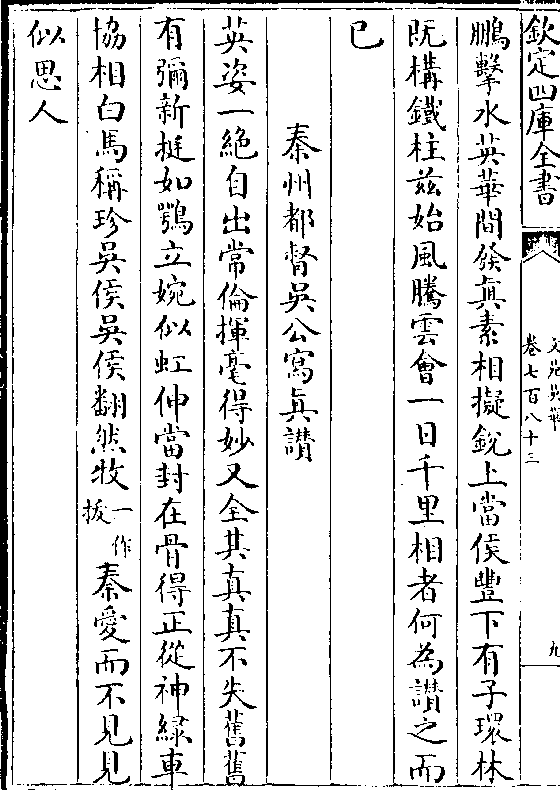 欽定四庫全書
文苑英華
卷七百八十三
九
鵬擊水英華間發真素相擬銳上當侯豐下有子環林
既構鐵柱兹始風騰雲會一日千里相者何為讃之而
已
秦州都督吳公寫真讃
英姿一絶自出常倫揮毫得妙又全其真真不失舊舊
有彌新挺如鶚立婉似虹伸當封在骨得正從神緑車
協相白馬稱珍吳侯吳侯翻然牧一作拔秦愛而不見見
似思人